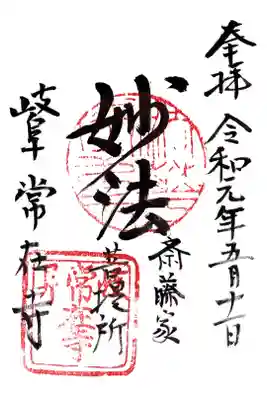 奉拝 令和元年五月十二日
斎藤家
妙法
菩提所
岐阜 常在寺